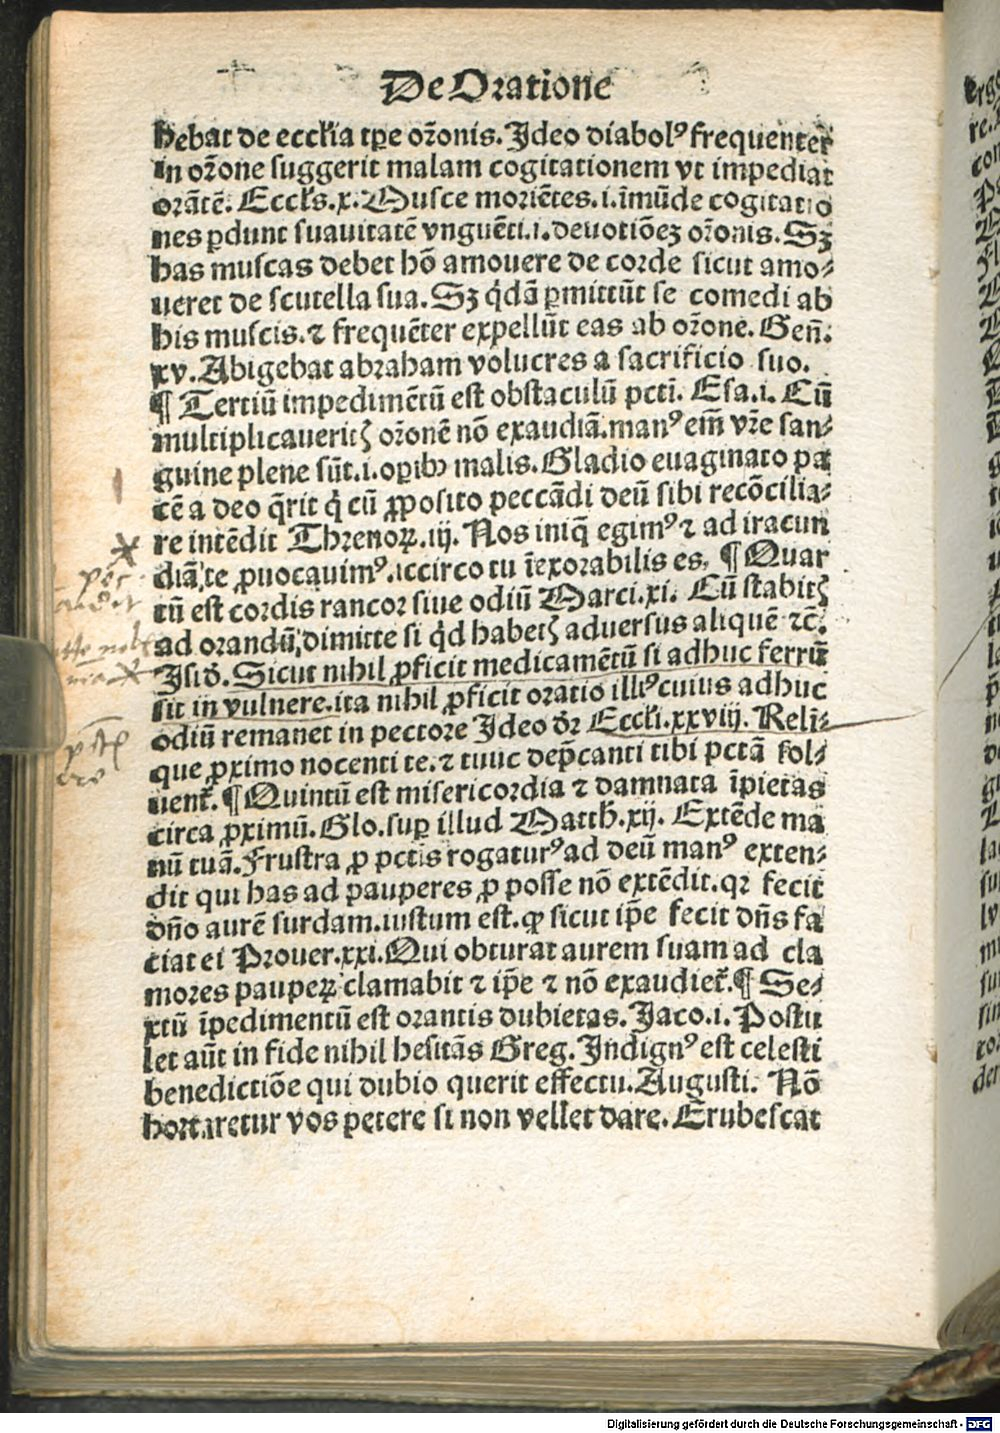 De Oratione
hebat de eccl'ia tp̄e or̄onis. Ideo diabolꝰ frequenter
in or̄one suggerit malam cogitationem vt impediat
orātē. Eccl's.x. Musce moriētes.i.īmūde cogitatio
nes ꝑdunt suauitatē vnguēti.i.deuotiōeꝫ or̄onis. Sꝫ
has muscas debet hō amouere de corde sicut amo⸗
ueret de scutella sua. Sꝫ q̇dā ꝑmittūt se comedi ab
his muscis. ⁊ frequēter expellūt eas ab or̄one. Gen̄.
xv. Abigebat abraham volucres a sacrificio suo.
¶ Tertiū impedimētū est obstaculū pcti̅. Esa.i. Cū
multiplicaueritꝭ or̄onē nō exaudiā. manꝰ em̄ vr̄e san⸗
guine plene sūt.i.oꝑibꝰ malis. Gladio euaginato pa
cē a deo q̄rit q̇ cū ꝓposito peccādi deū sibi recōcilia⸗
re intēdit Threnoꝝ.iij. Nos iniq̄ egimꝰ ⁊ ad iracun
diā te ꝓuocauimꝰ. iccirco tu īexorabilis es. ¶ Quar
tū est cordis rancor siue odiū Marci.xi. Cū stabitꝭ
ad orandū dimitte si q̇d habetꝭ aduersus aliquē ⁊c̄.
Isid̓. Sicut nihil ꝓficit medicamētū si adhuc ferrū
sit in vulnere. ita nihil ꝓficit oratio illiꝰ cuius adhuc
odiū remanet in pectore Ideo dr̄ Eccl'i.xxviij. Reli̅⸗
que ꝓximo nocenti te. ⁊ tunc dep̄canti tibi pctā sol⸗
uent̃. ¶ Quintū est misericordia ⁊ damnata īpietas
circa ꝓximū. Glo.suꝑ illud Matth.xij. Extēde ma
nū tuā. Frustra ꝓ pctis rogaturꝰ ad deū manꝰ exten⸗
dit qui has ad pauperes ꝓ posse nō extēdit. qꝛ fecit
dn̄o aurē surdam. iustum est. ꝙ sicut ip̄e fecit dn̄s fa
ciat ei Prouer.xxi. Qui obturat aurem suam ad cla
mores pauperꝝ clamabit ⁊ ip̄e ⁊ nō exaudiet̃. ¶ Se⸗
xtū īpedimentū est orantis dubietas. Jaco.i. Postu
let aūt in fide nihil hesitās Greg. Indignꝰ est celesti
benedictiōe qui dubio querit effectu. Augusti. Nō
hortaretur vos petere si non vellet dare. Erubescat
Digitalisierung gefördert durch die Deutsche Forschungsgemeinschaft - DFG